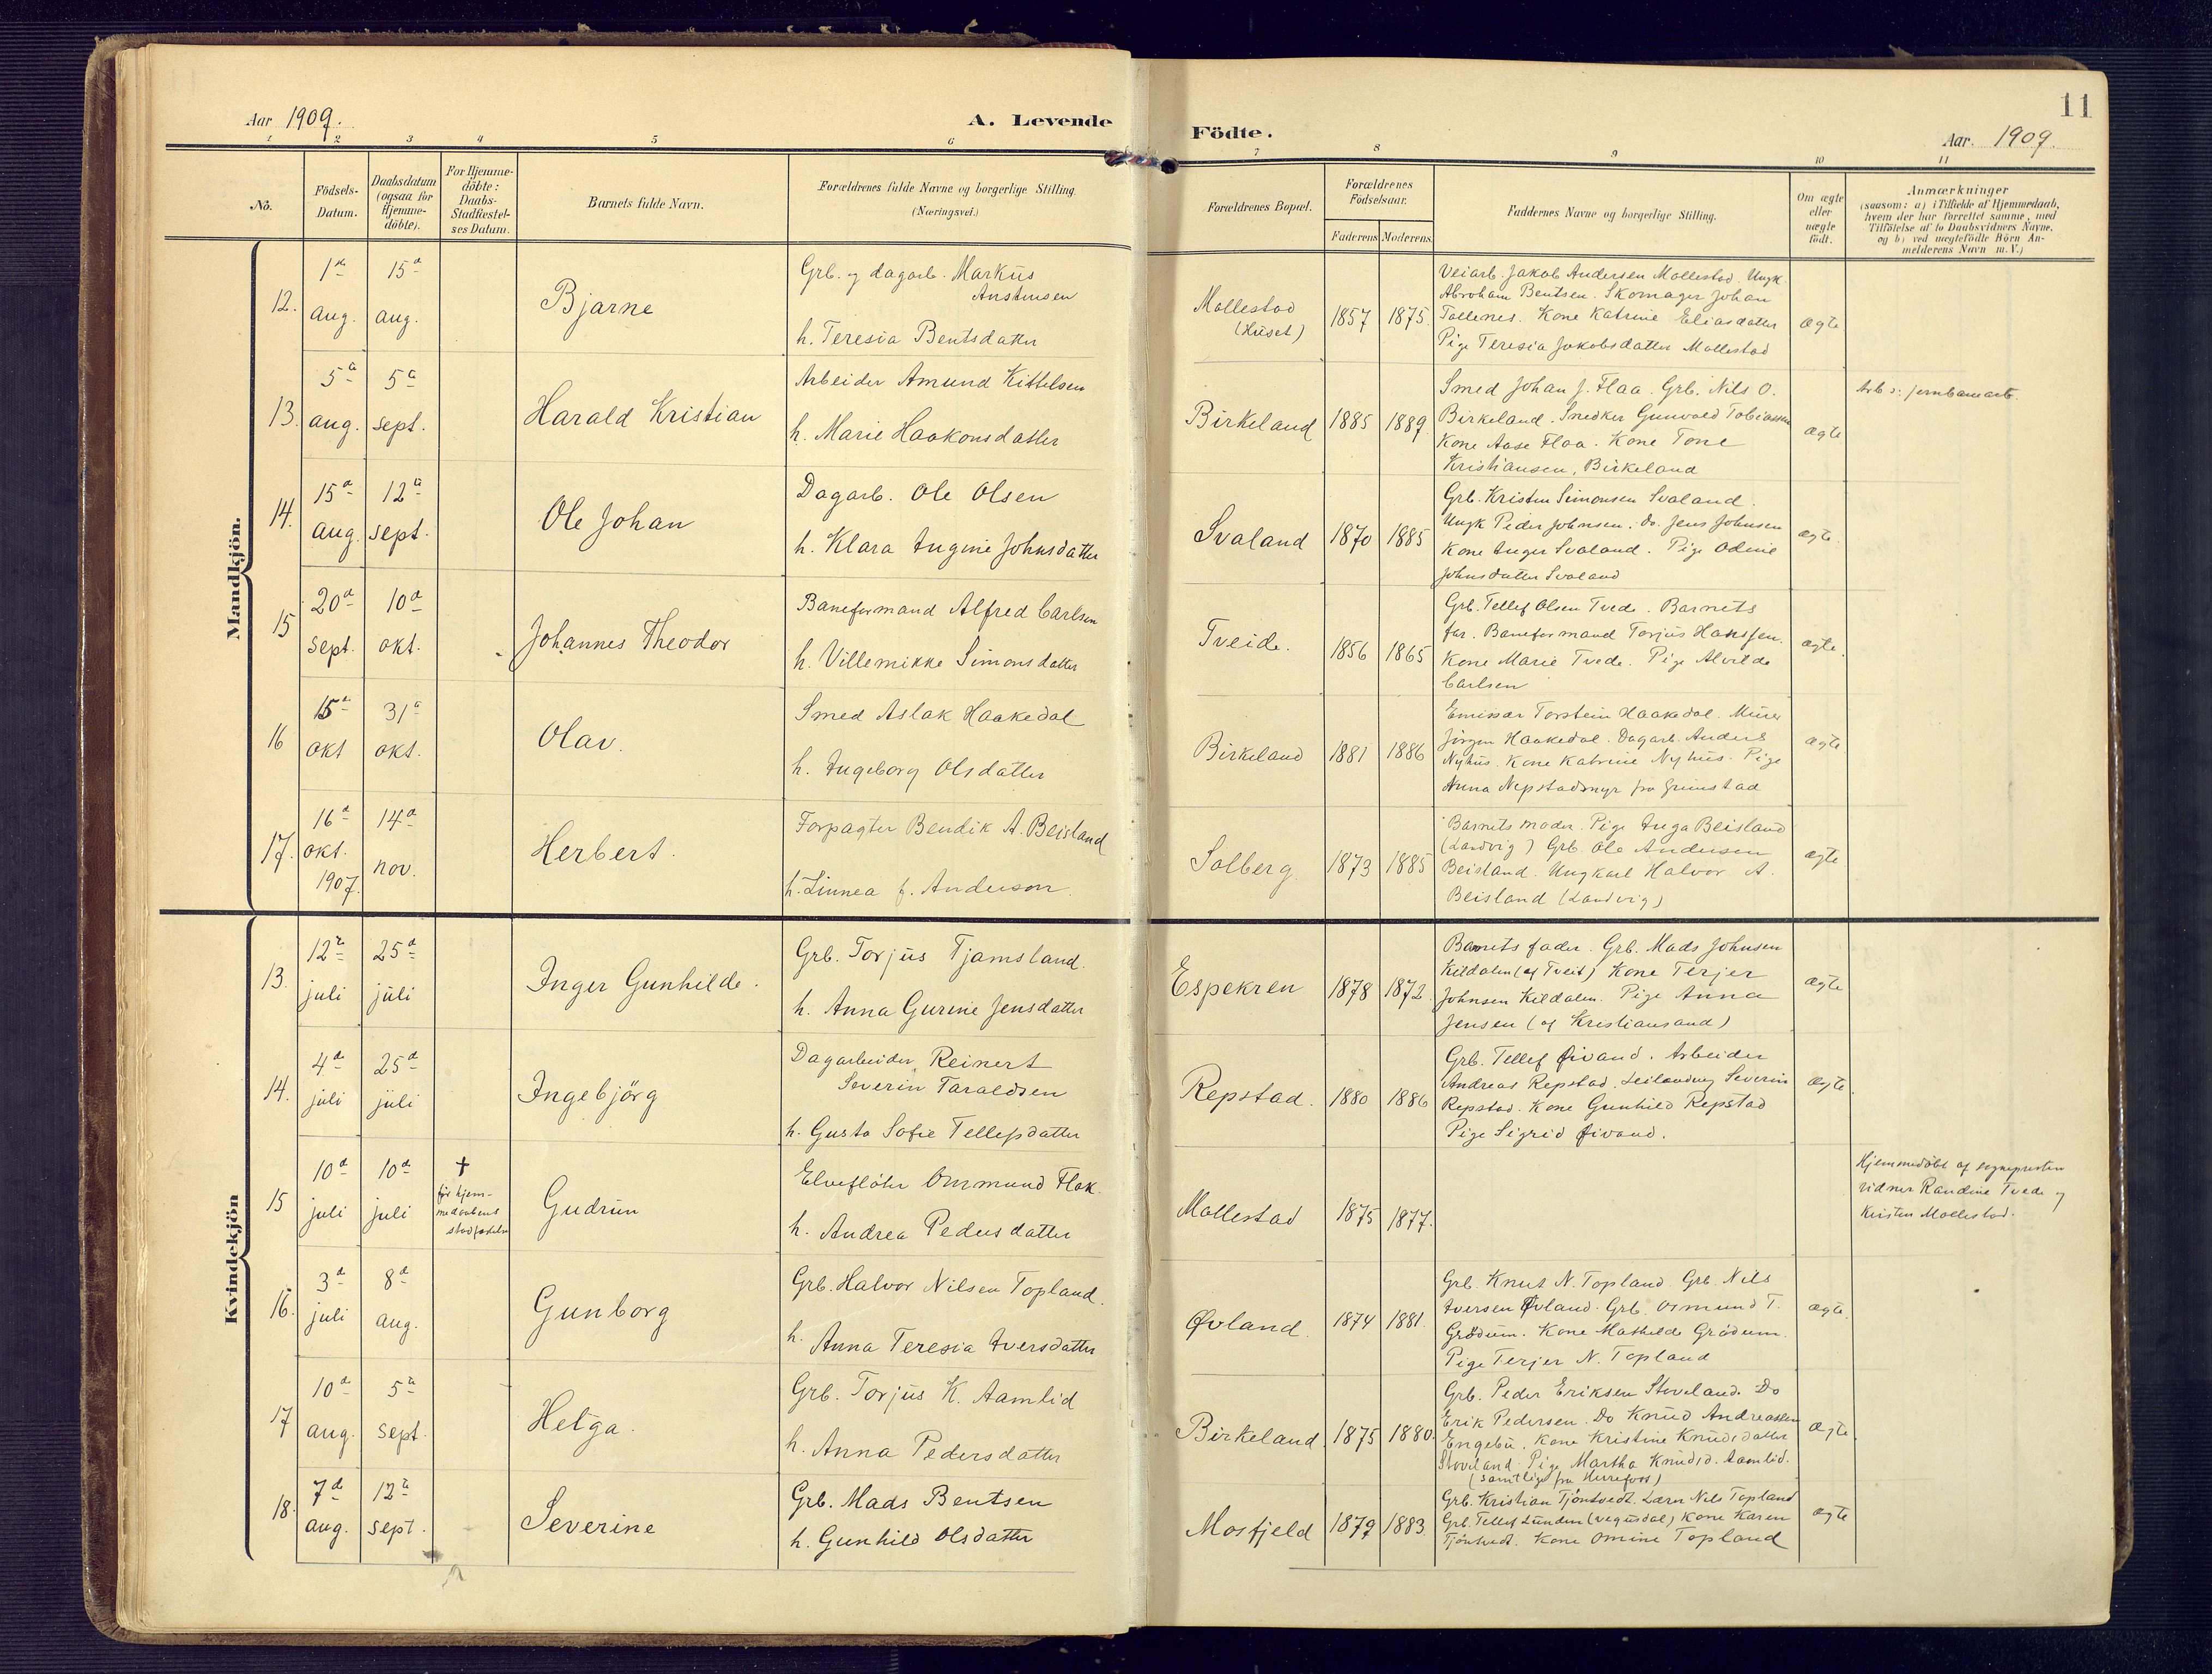 11
Aar 1909.
A. Levende
Födte.
Aar. 1909.
1 2 3 4 5 6 7 8 9 10 11
No.
Födsels-
Datum.
Daabsdatum
(ogsaa for
Hjemme-
döbte).
For Hjemme-
döbte:
Daabs-
Stadfæstel-
ses Datum.
Barnets fulde Navn.
Forældrenes fulde Navne og borgerlige Stilling.
(Næringsvei.)
Forældrenes Bopæl.
Forældrenes
Födselsaar.
Faderens.
Moderens.
Faddernes Navne og borgerlige Stilling.
Om ægte
eller
uægte
födt.
Anmærkninger
(saasom: a) i Tilfælde af Hjemmedaab,
hvem der har forrettet samme, med
Tilföielse af to Daabsvidners Navne,
og b) ved uægtefödte Börn An-
melderens Navn m.V.)
Mandkjön.
12.
1ste
aug.
15de
aug.
Bjarne
Grb. og dagarb. Markus
Anstensen
h. Teresia Bentsdatter
Mollestad
(Huset)
1857
1875.
Veiarb. Jakob Andersen Mollestad. Ungk
Abraham Bentsen. Skomager Johan
Tallenes. Kone Katrine Eliasdatter
Pige Teresia Jakobsdatter Mollestad
ægte
13.
5te
aug.
5te
sept.
Harald Kristian
Arbeider Amund Kittelsen
h. Marie Haakonsdatter
Birkeland
1885
1889
Smed Johan J. Flaa. Grb. Nils O.
Birkeland. Snedker Gunvald Tobiassen
Kone Aase Flaa. Kone Tone
Kristiansen, Birkeland
ægte
Arb v. jernbanearb.
14.
15de
aug.
12te
sept.
Ole Johan
Dagarb. Ole Olsen
h. Klara Ingine Johnsdatter
Svaland
1870
1885
Grb. Kristen Simonsen Svaland.
Ungk Peder Johnsen. Do. Jens Johnsen
Kone Inger Svaland. Pige Odine
Johnsdatter Svaland
ægte.
15
20de
sept.
10de
okt.
Johannes Theodor
Baneformand Alfred Carlsen
h. Villemikke Simonsdatter
Tveide.
1856
1865
Grb. Tellef Olsen Tvede. Barnets
far. Baneformand Torjus Hanssen.
Kone Marie Tvede. Pige Alvilde
Carlsen
ægte.
16
15de
okt
31te
okt.
Olav.
Smed Aslak Haakedal
h. Ingeborg Olsdatter
Birkeland
1881
1886
Emissær Torstein Haakedal. Murer
Jörgen Haakedal. Dagarb. Anders
Nyhus. Kone Katrine Nyhus. Pige
Anna Nepstadmyr fra Grimstad
ægte
17.
16de
okt.
1907.
14de
nov.
Herbert.
Forpagter Bendik A. Beisland
h. Linnea f. Anderson.
Solberg
1873
1885
Barnets moder. Pige Inga Beisland
(Landvig) Grb. Ole Andersen
Beisland. Ungkarl Halvor A.
Beisland (Landvig)
ægte
Kvindekjön
13.
12te
juli
25de
juli
Inger Gunhilde.
Grb. Torjus Tjamsland.
h. Anna Gurine Jensdatter
Espekren
1878
1872.
Barnets fader. Grb. Mads Johnsen
Kildalen (af Tveit) Kone Terjer
Johnsen Kildalen. Pige Anna
Jensen (af Kristiansand)
ægte
14.
4de
juli
25de
juli
Ingebjörg
Dagarbeider Reinert
Severin Taraldsen
h. Gusta Sofie Tellefsdatter
Repstad.
1880
1886
Grb. Tellef Øivand. Arbeider
Andreas Repstad. Leilænding Severin
Repstad. Kone Gunhild Repstad
Pige Sigrid Øivand.
ægte.
15
10de
juli
10de
juli
†
för hjem-
medaabens
stadfæstelse
Gudrun
Elveflöter Ommund Flak.
h. Andrea Pedersdatter
Mollestad
1875
1877.
Hjemmedöbt af sognepresten
vidner Randine Tvede og
Kirsten Mollestad.
16.
3de
juli
8de
aug.
Gunborg
Grb. Halvor Nilsen Topland.
h. Anna Teresia Iversdatter
Øvland.
1874
1881.
Grb. Knut N. Topland. Grb. Nils
Iversen Øvland. Grb. Osmund T.
Grödum. Kone Mathilde Grödum.
Pige Terjer N. Topland
ægte.
17
10de
aug.
5te
sept.
Helga.
Grb. Torjus K. Aamlid
h. Anna Pedersdatter
Birkeland.
1875
1880.
Grb. Peder Eriksen Stoveland. Do
Erik Pedersen. Do Knud Andreassen
Engebu. Kone Kristine Knudsdatter
Stoveland Pige Martha Knudsd. Aamlid.
(samtlige fra Herrefoss)
ægte
18.
7de
aug.
12te
sept.
Severine
Grb. Mads Bentsen
h. Gunhild Olsdatter
Mosfjeld
1879
1883.
Grb. Kristian Tjöntvedt. Lærer Nils Topland
Grb. Tellef Lunden (Vegusdal) Kone Karen
Tjöntvedt. Kone Omine Topland
ægte